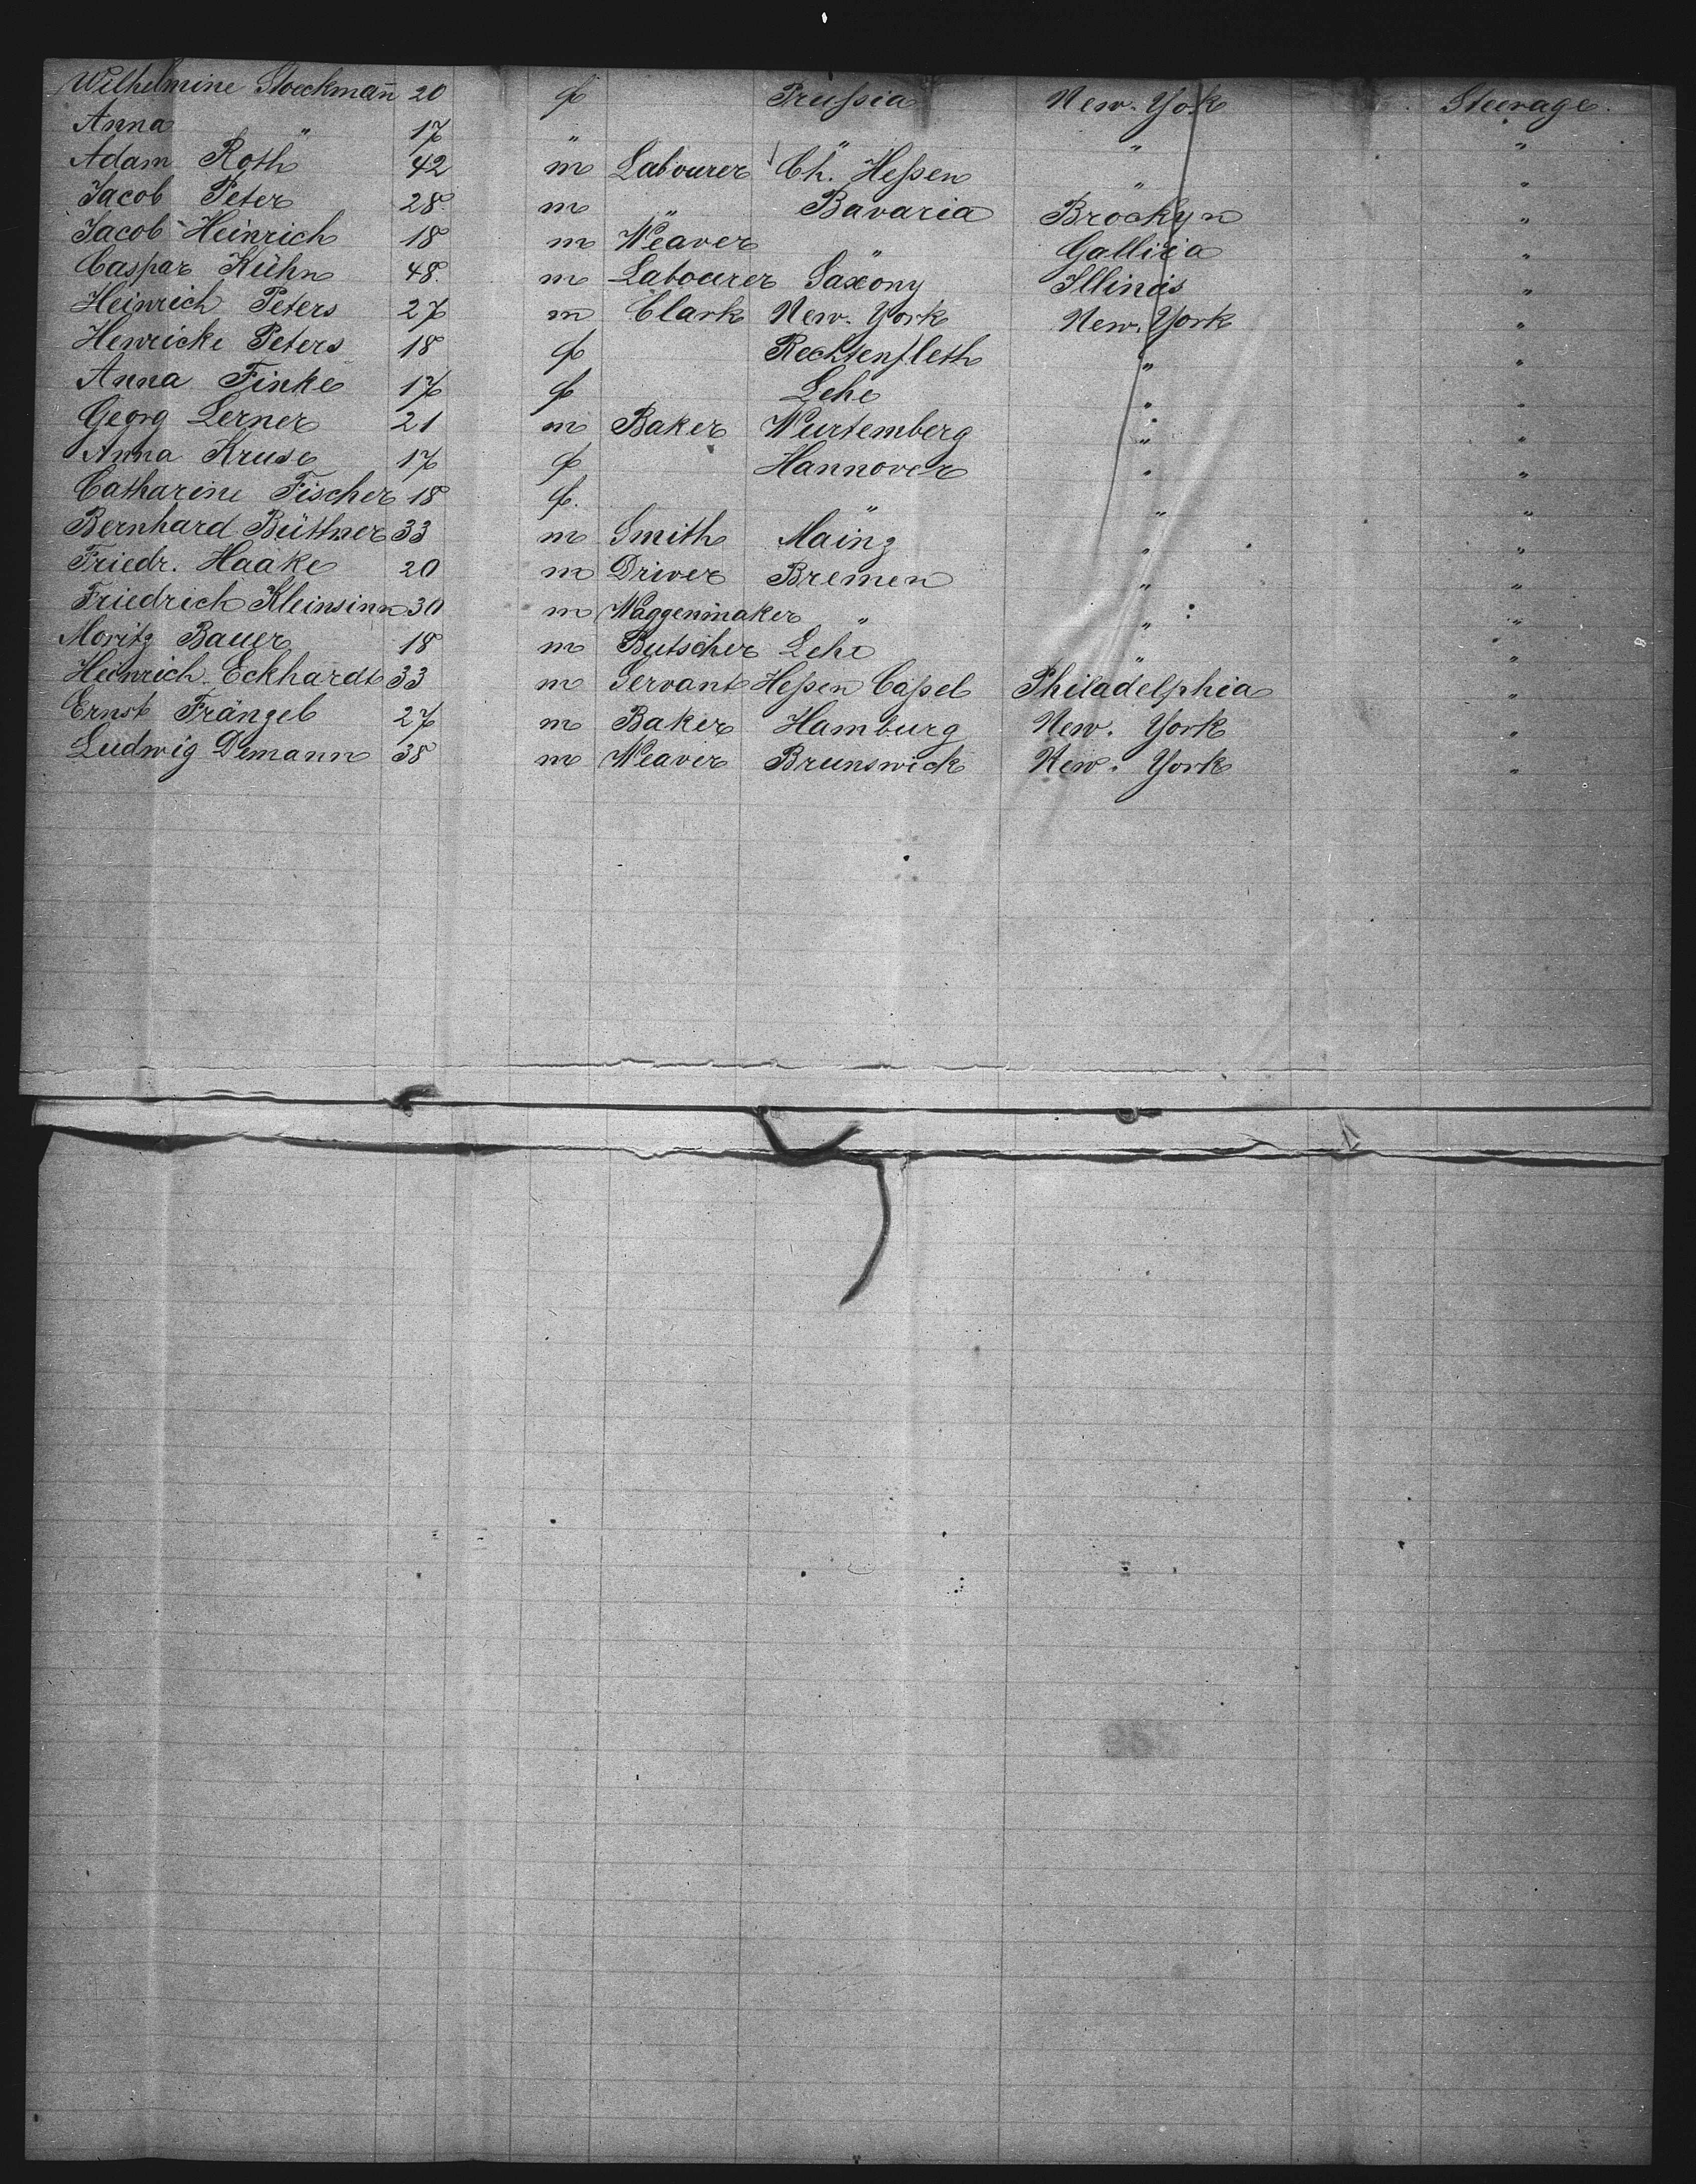 Wilhelmine Stoeckmann 20 f Prussia New. York Steerage.
Anna " 17 " " " "
Adam Roth 42 m Labourer Ch. Hessen " "
Jacob Peter 28. m " Bavaria Brooklyn "
Jacob Heinrich 18 m Weaver " Gallicia "
Caspar Kühn 48. m Labourer Saxony Illinois "
Heinrich Peters 27 m Clark New. York New. York "
Henricke Peters 18 f Rechtenfleth " "
Anna Finke 17 f Lehe " "
Georg Lerner 21 m Baker Wurtemberg " "
Anna Kruse 17 f Hannover " "
Catharine Fischer 18 f. " " "
Bernhard Büttner 33 m Smith Mainz " "
Friedr. Haake 20 m Driver Bremen " "
Friedrich Kleinsinn 30 m Waggenmaker " " "
Moritz Bauer 18 m Butscher Lehe " "
Heinrich Eckhardt 33 m Servant Hessen Cassel Philadelphia "
Ernst Fränzel 27 m Baker Hamburg New. York "
Ludwig Demann 38 m Weaver Brunswick New. York "